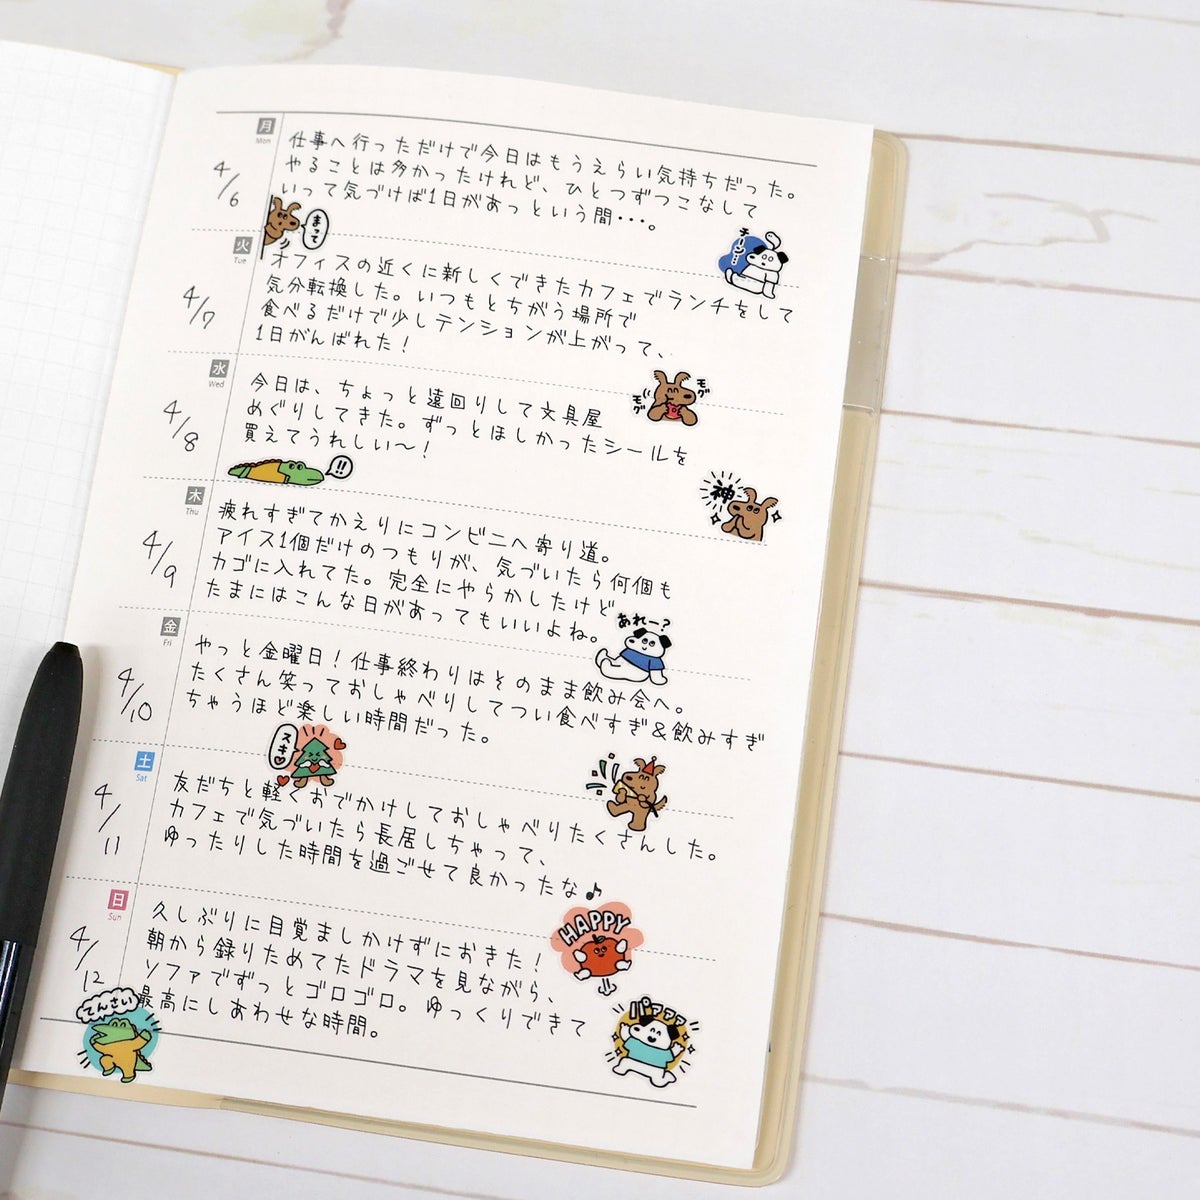 月
Mon
4/6
仕事へ行っただけで今日はもうえらい気持ちだった。
やることは多かったけれど、ひとつずつこなして
いって気づけば1日があっという間・・・。
まって
チーン…
火
Tue
4/7
オフィスの近くに新しくできたカフェでランチをして
気分転換した。いつもとちがう場所で
食べるだけで少しテンションが上がって、
1日がんばれた！
モグ
モグ
水
Wed
4/8
今日は、ちょっと遠回りして文具屋
めぐりしてきた。ずっとほしかったシールを
買えてうれしい〜！
!!
神
木
Thu
4/9
疲れすぎてかえりにコンビニへ寄り道。
アイス1個だけのつもりが、気づいたら何個も
カゴに入れてた。完全にやらかしたけど
たまにはこんな日があってもいいよね。
あれー？
金
Fri
4/10
やっと金曜日！仕事終わりはそのまま飲み会へ。
たくさん笑っておしゃべりしてつい食べすぎ&飲みすぎ
ちゃうほど楽しい時間だった。
スキ
土
Sat
4/11
友だちと軽くおでかけしておしゃべりたくさんした。
カフェで気づいたら長居しちゃって、
ゆったりした時間を過ごせて良かったな♪
HAPPY
日
Sun
4/12
久しぶりに目覚ましかけずにおきた！
朝から録りためてたドラマを見ながら、
ソファでずっとゴロゴロ。ゆっくりできて
最高にしあわせな時間。
てんさい
パァァァ